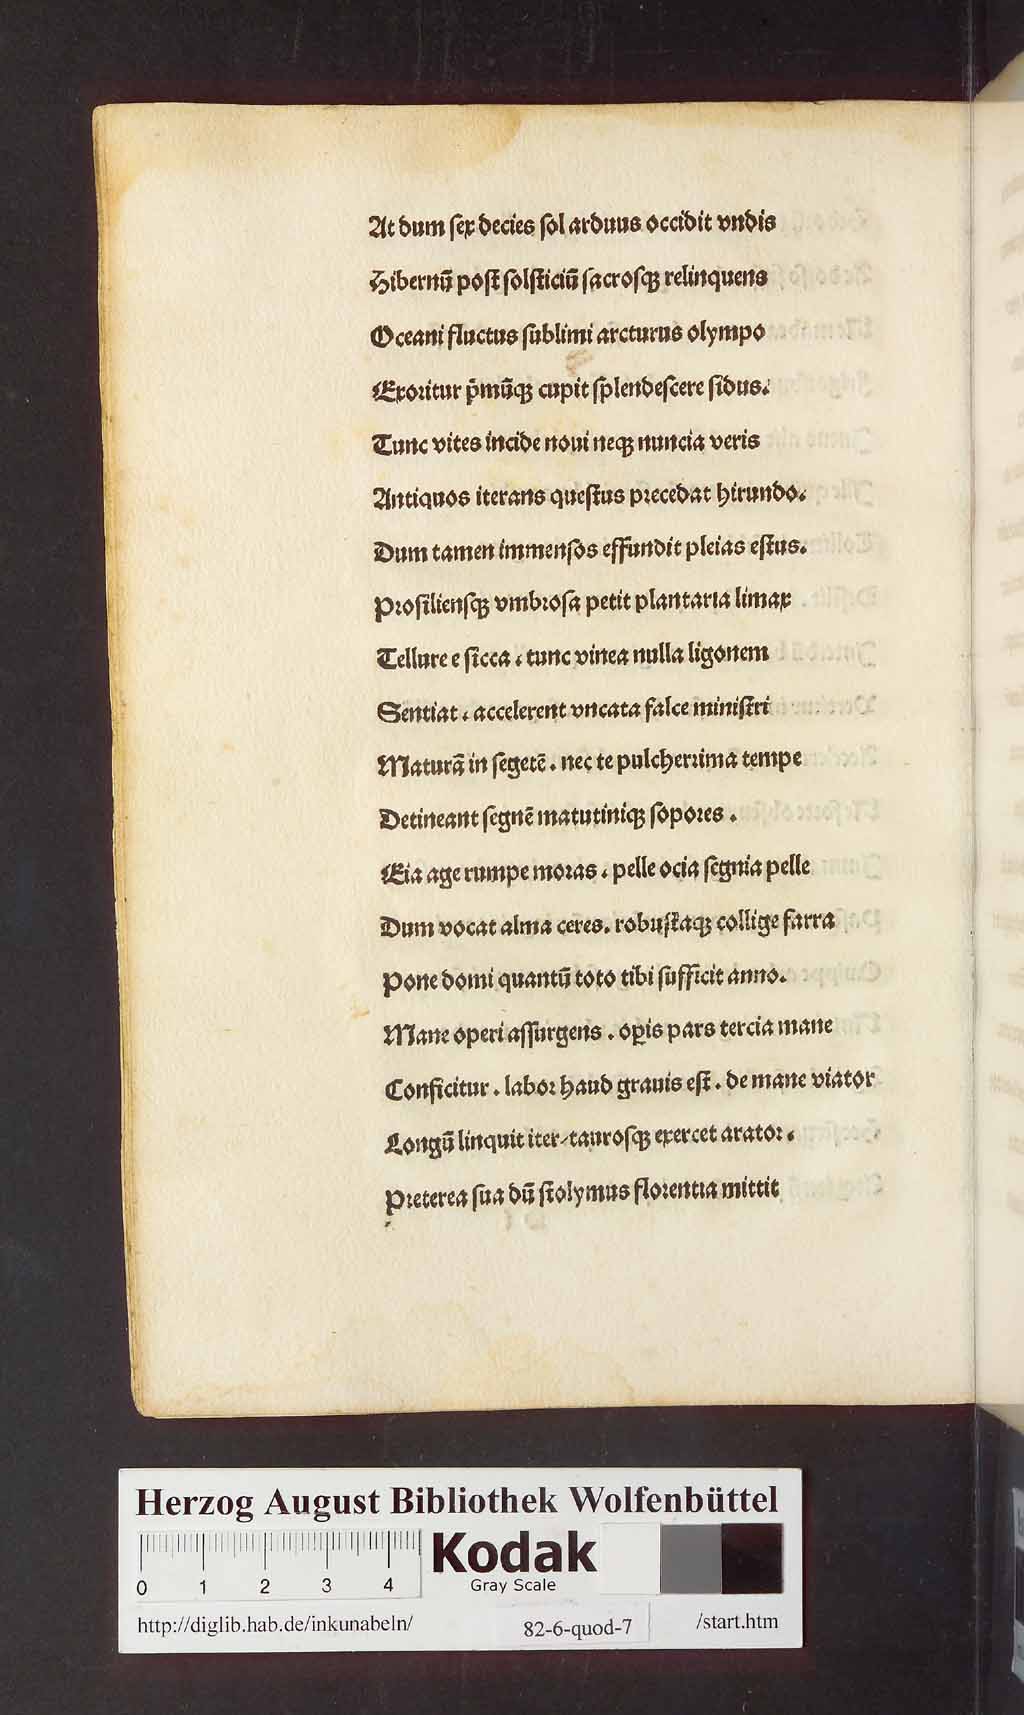 At dum ſex decies ſol arduus occidit vndis
Hibernū poſt ſolſticiū ſacroſqꝫ relinquens
Oceani fluctus ſublimi arcturus olympo
Exoꝛitur p̄mūqꝫ cupit ſplendeſcere ſidus.
Tunc vites incide noui neqꝫ nuncia veris
Antiquos iterans queſtus pꝛecedat hirundo.
Dum tamen immenſos effundit pleias eſtus.
Pꝛoſilienſqꝫ vmbꝛoſa petit plantaria limax
Tellure e ſicca . tunc vinea nulla ligonem
Sentiat . accelerent vncata falce miniſtri
Maturā in ſegetē . nec te pulcherꝛima tempe
Detineant ſegnē matutiniqꝫ ſopoꝛes .
Eia age rumpe moꝛas . pelle ocia ſegnia pelle
Dum vocat alma ceres. robuſtaqꝫ collige farra
Pone domi quantū toto tibi ſufficit anno.
Mane operi aſſurgens . oꝑis pars tercia mane
Conficitur . laboꝛ haud grauis eſt . de mane viator
Longū linquit iter/tauroſqꝫ exercet aratoꝛ.
Pꝛeterea ſua dū ſtolymus floꝛentia mittit
Herzog August Bibliothek Wolfenbüttel
0 1 2 3 4
Kodak
Gray Scale
http://diglib.hab.de/inkunabeln/ 82-6-quod-7 /start.htm